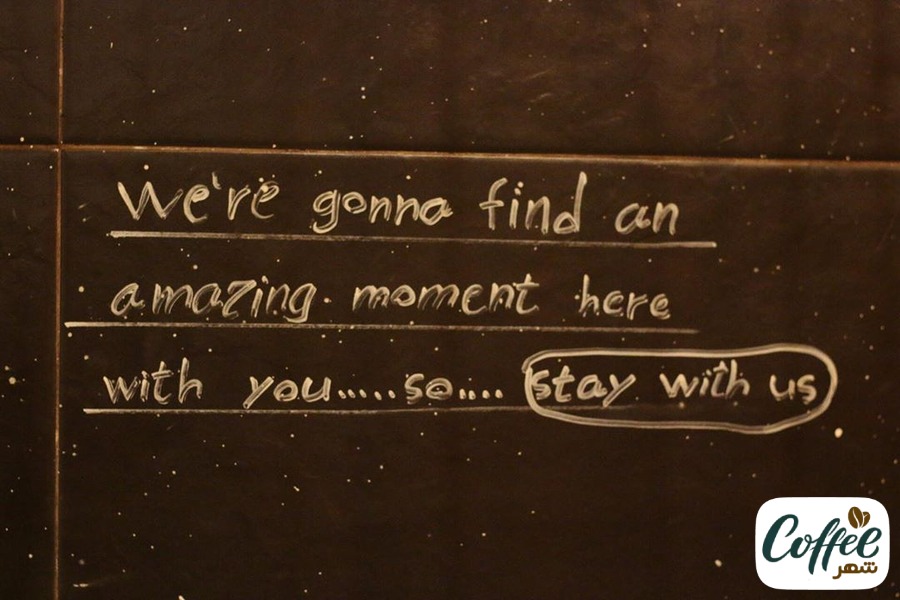 We're gonna find an
amazing moment here
with you.....so.... stay with us
Coffee
شهر